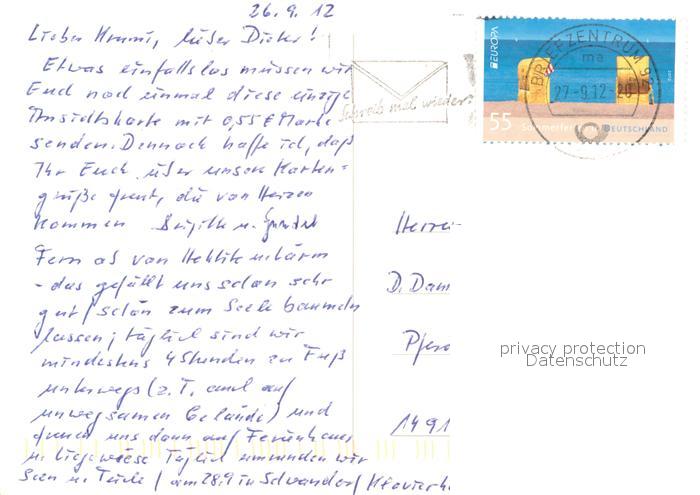 26.9.12
Lieber Hmmi, lieber Dieter!
Etwas einfallslos müssen wir
Euch noch einmal diese einzige
Ansichtskarte mit 0,55 € Marke
senden. Dennoch hoffe ich, daß
Ihr Euch über unsere Karten-
grüße freut, die von Herzen
kommen Brigitte u.
Fern ab von Hektik u. Lärm
- das gefällt uns schon sehr
gut / schön zum Seele baumeln
lassen; täglich sind wir
mindestens 4 Stunden zu Fuß
unterwegs (z.T. auch auf
unwegsamen Gelände) und
freuen uns dann auf Ferienhaus
u. Liegewiese täglich umrunden wir
Seen u. Teiche / am 28.9 in Schwandorf / Klavierk
Schreib mal wieder!
EUROPA
BRIEFZENTRUM 9
ma
27-9.12-20
55 Sommerfer DEUTSCHLAND
Herrn
D. Dam
1491
privacy protection
Datenschutz